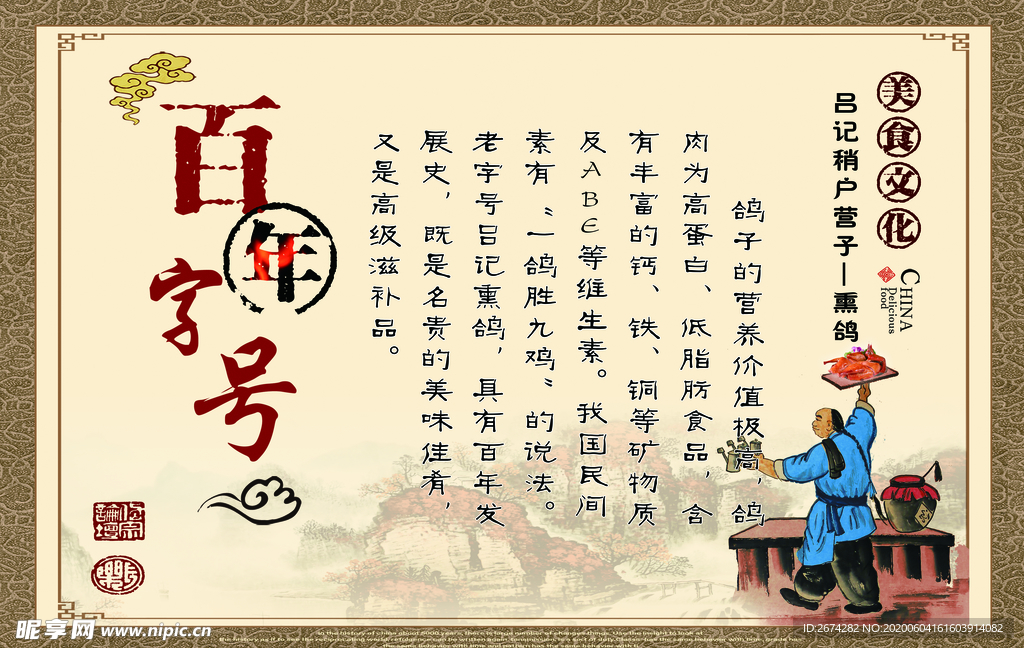 美食文化
CHINA
Delicious
food
吕记稍户营子—熏鸽
鸽子的营养价值极高，鸽
肉为高蛋白、低脂肪食品，含
有丰富的钙、铁、铜等矿物质
及ABE等维生素。我国民间
素有“一鸽胜九鸡”的说法。
老字号吕记熏鸽，具有百年发
展史，既是名贵的美味佳肴，
又是高级滋补品。
百年
字号
昵享网 www.nipic.cn
ID:2674282 NO:20200604161603914082